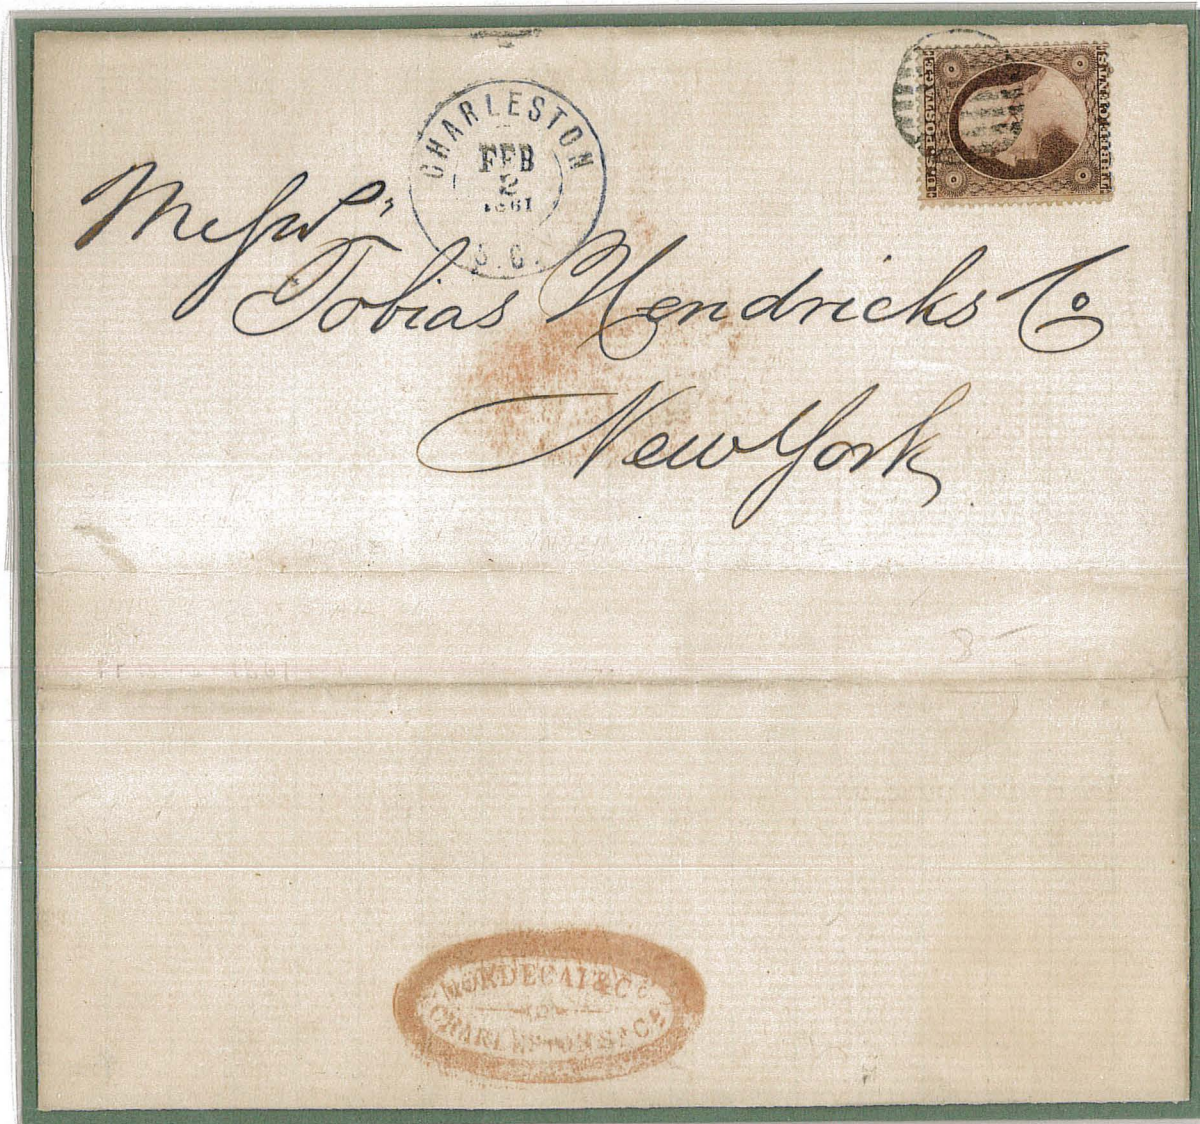 CHARLESTON
FEB
2
1861
S.C.
U.S. POSTAGE
THREE CENTS
Messrs
Tobias Hendricks Co
New York
MORDECAI & Co
CHARLESTON So Ca